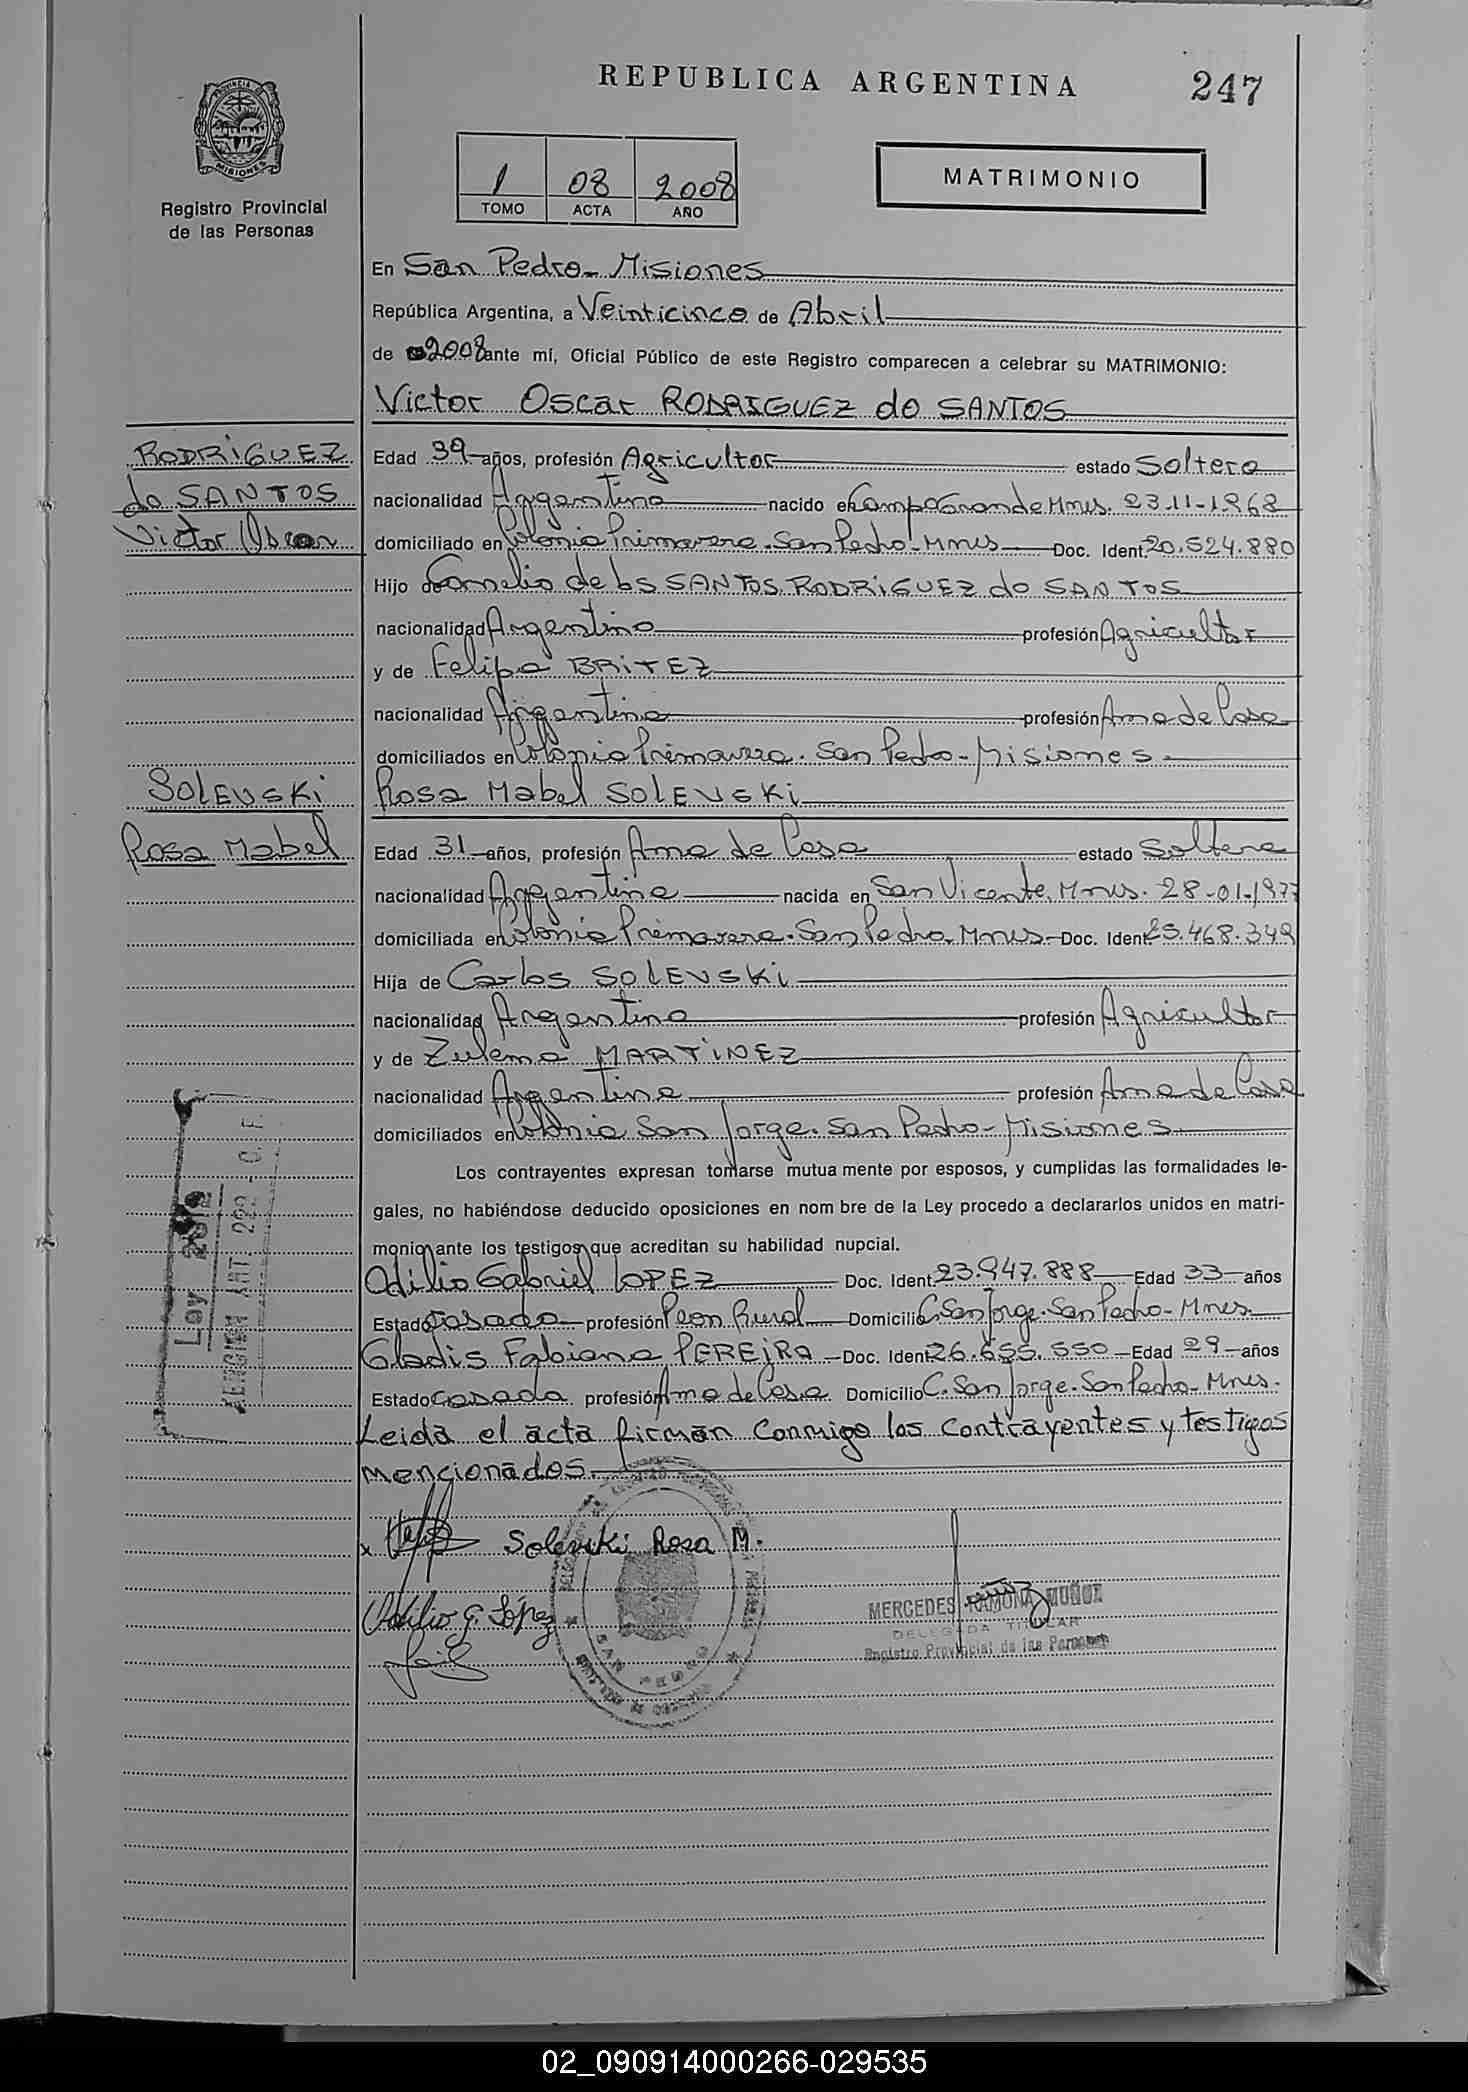 REPUBLICA ARGENTINA
247
PROVINCIA DE MISIONES
Registro Provincial
de las Personas
1 08 2008
TOMO ACTA AÑO
MATRIMONIO
En San Pedro - Misiones
República Argentina, a Veinticinco de Abril
de 2008 ante mí, Oficial Público de este Registro comparecen a celebrar su MATRIMONIO:
Victor Oscar RODRIGUEZ do SANTOS
RODRIGUEZ
do SANTOS
Victor Oscar
Edad 39 años, profesión Agricultor estado Soltero
nacionalidad Argentino nacido en Campo Grande Mnes. 23-11-1968
domiciliado en Colonia Primavera. San Pedro - Mnes Doc. Ident. 20.524.880
Hijo de Cornelio de los SANTOS RODRIGUEZ do SANTOS
nacionalidad Argentino profesión Agricultor
y de Felipa BRITEZ
nacionalidad Argentina profesión Ama de Casa
domiciliados en Colonia Primavera. San Pedro - Misiones
SOLEVSKi
Rosa Mabel
Rosa Mabel SOLEVSKi
Edad 31 años, profesión Ama de Casa estado Soltera
nacionalidad Argentina nacida en San Vicente. Mnes. 28-01-1977
domiciliada en Colonia Primavera. San Pedro. Mnes Doc. Ident. 25.468.349
Hija de Carlos SOLEVSKi
nacionalidad Argentino profesión Agricultor
y de Zulema MARTINEZ
nacionalidad Argentina profesión Ama de Casa
domiciliados en Colonia San Jorge. San Pedro - Misiones
Los contrayentes expresan tomarse mutua mente por esposos, y cumplidas las formalidades le-
gales, no habiéndose deducido oposiciones en nom bre de la Ley procedo a declararlos unidos en matri-
monio ante los testigos que acreditan su habilidad nupcial.
Odilio Gabriel LOPEZ Doc. Ident. 23.947.888 Edad 33 años
Estado Casado profesión Peon Rural Domicilio C. San Jorge. San Pedro - Mnes.
Gladis Fabiana PEREiRA Doc. Ident. 26.655.550 Edad 29 años
Estado Casada profesión Ama de Casa Domicilio C. San Jorge. San Pedro - Mnes.
Leida el acta firman conmigo los contrayentes y testigos
mencionados.
Ley
ART. 292 - C. P.
x Solevski Rosa M.
Odilio G. López
SAN PEDRO
MERCEDES RAMONA MUÑOZ
DELEGADA TITULAR
Registro Provincial de las Personas
02_090914000266-029535